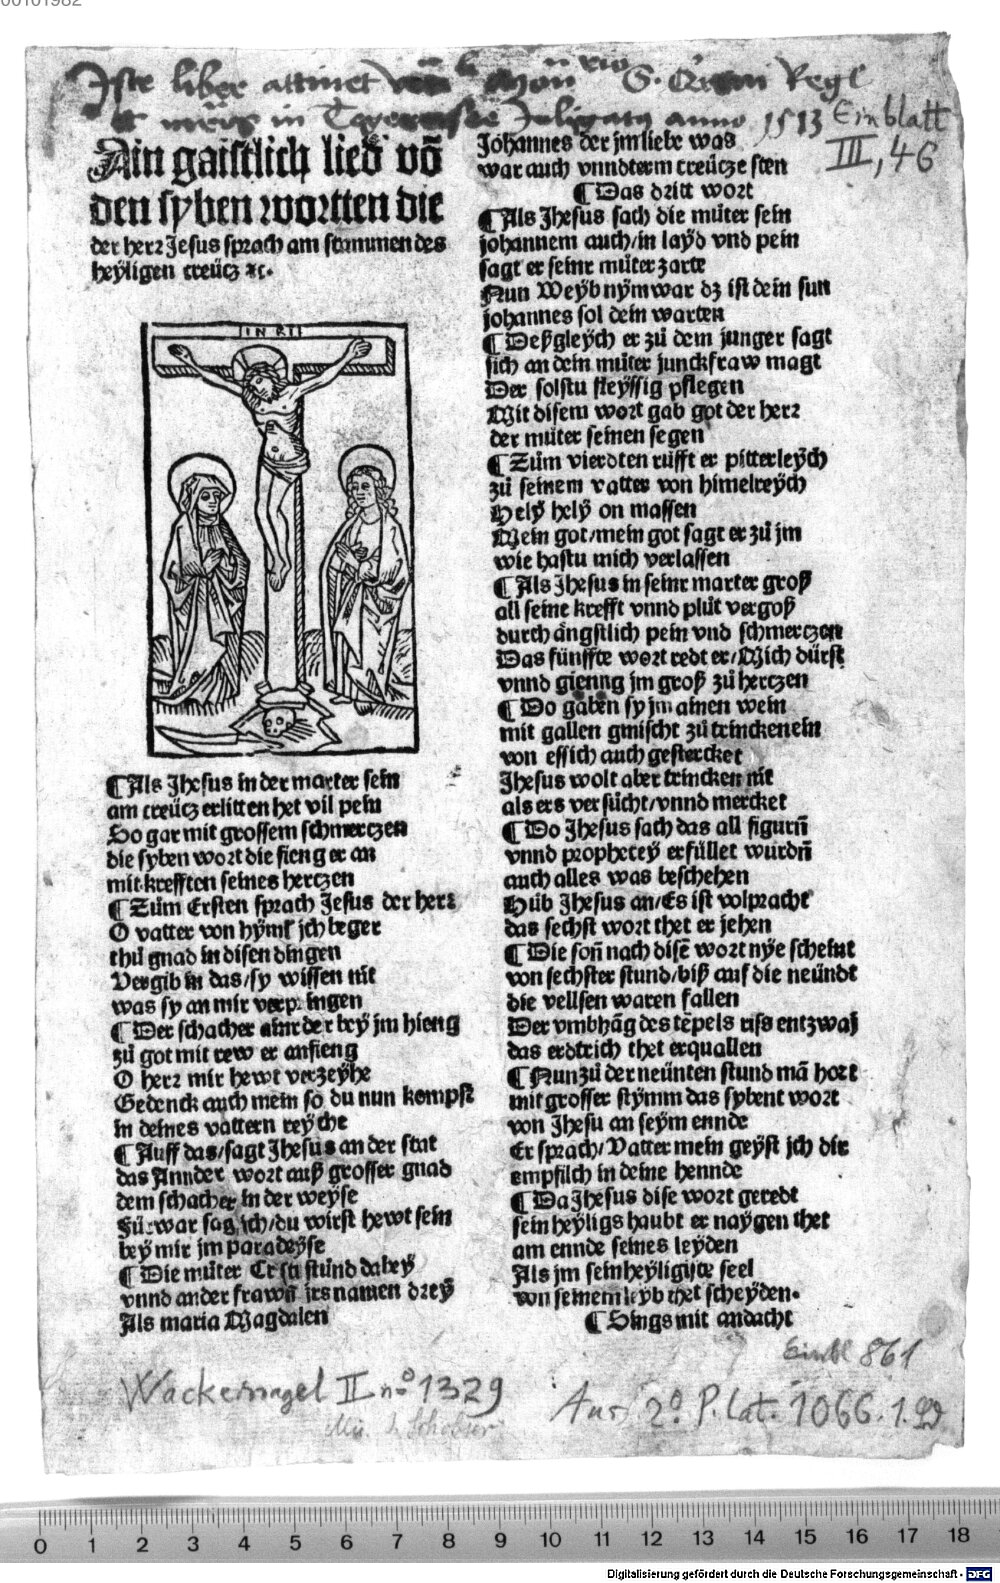 00101982
Iste liber attinet S. Quirini Regl
in Tegernsee Inligatus anno 1513
Einblatt
III, 46
Ain gaistlich lied võ
den syben wortten die
der herr Jesus sprach am stammen des
heyligen creütz ꝛc.
INRI
¶ Als Jhesus in der marter sein
am creütz erlitten het vil pein
So gar mit grossem schmerczen
die syben wort die fieng er an
mit krefften seines hertzen
¶ Züm Ersten sprach Jesus der herr
O vatter von hýml jch beger
thů gnad in disen dingen
Vergib in das/sy wissen nit
was sy an mir verpringen
¶ Der schacher ainr der bey jm hieng
zů got mit rew er anfieng
O herr mir hewt verzeyhe
Gedenck auch mein so du nun kompst
in deines vattern reyche
¶ Auff das/sagt Jhesus an der stat
das Annder wort auß grosser gnad
dem schacher in der weyse
Für war sag ich/du wirst hewt sein
bey mir jm paradeyse
¶ Die můter Cristi stůnd dabey
vnnd ander frawñ jrs namen drey
Als maria Magdalen
Johannes der jm liebe was
war auch vnnderm creütze sten
¶ Das dritt wort
¶ Als Jhesus sach die můter sein
johannem auch/in layd vnd pein
sagt er seinr můter zarte
Nun Weyb nym war dz ist dein sun
johannes sol dein warten
¶ Deßgleych er zů dem junger sagt
sich an dein můter junckfraw magt
Der solstu fleyssig pflegen
Mit disem wort gab got der herr
der můter seinen segen
¶ Züm vierdten růfft er pitterleych
zů seinem vatter von himelreych
Hely hely on massen
Mein got/mein got sagt er zů jm
wie hastu mich verlassen
¶ Als Jhesus in seinr marter groß
all seine krefft vnnd plůt vergoß
durch ängstlich pein vnd schmerczen
Das fünffte wort redt er/Mich dürst
vnnd gienng jm groß zů hertzen
¶ Do gaben sy jm ainen wein
mit gallen gmischt zů trincken ein
von essich auch gestercket
Jhesus wolt aber trincken nit
als ers versücht/vnnd mercket
¶ Do Jhesus sach das all figurñ
vnnd prophecey erfüllet wurdñ
auch alles was beschehen
Hůb Jhesus an/Es ist volpracht
das sechst wort thet er jehen
¶ Die soñ nach disẽ wort nye scheint
von sechster stund/biß auf die neündt
die vellsen waren fallen
Der vmbhãg des tẽpels riss entzway
das erdtrich thet erquallen
¶ Nun zů der neünten stund mã hort
mit grosser stymm das sybent wort
von Jhesu an seym ennde
Er sprach/Vatter mein geyst jch dir
empfilch in deine hennde
¶ Da Jhesus dise wort geredt
sein heyligs haubt er naygen thet
am ennde seines leyden
Als jm sein heyligiste seel
von seinem leyb thet scheyden.
¶ Sings mit andacht
Einbl 861
Wackernagel II no 1329
Aus 2o P. lat. 1066. 1. 99
0 1 2 3 4 5 6 7 8 9 10 11 12 13 14 15 16 17 18
Digitalisierung gefördert durch die Deutsche Forschungsgemeinschaft - DFG